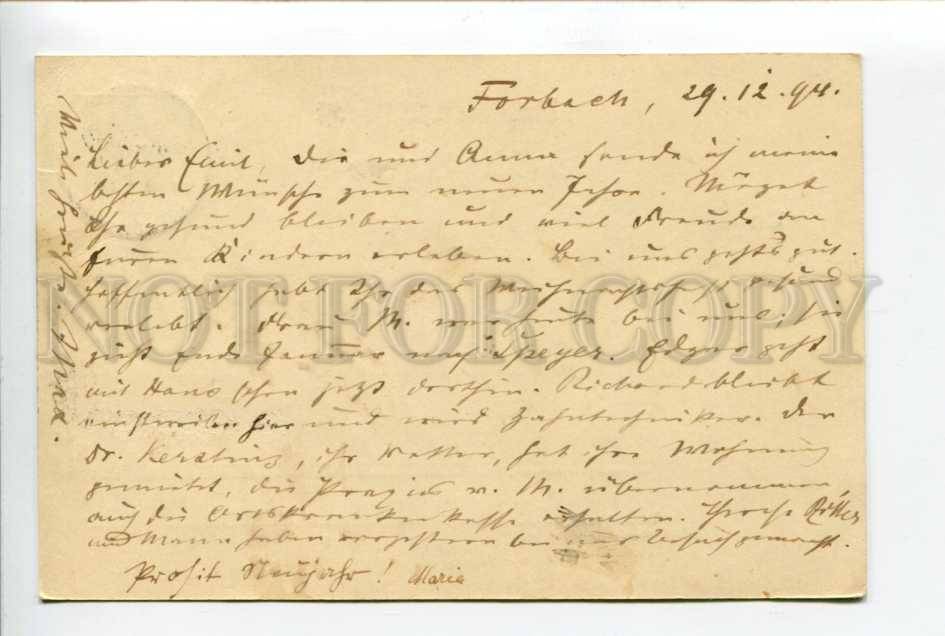 Forbach, 29.12.94.
Lieber Emil, Dir und Anna sende ich meine
besten Wünsche zum neuen Jahre. Möget
Ihr gesund bleiben und viel Freude an
Euren Kindern erleben. Bei uns geht's gut.
Hoffentlich habt Ihr das Weihnachtsfest gesund
verlebt. Frau M. war heute bei uns; sie
zieht Ende Januar nach Speyer. Edgar geht
mit Hans schon jetzt dorthin. Richard bleibt
einstweilen hier und wird Zahntechniker. Der
Dr. Kersting, ihr Vetter, hat ihre Wohnung
gemietet, die Praxis v. M. übernommen
auch die Ortskrankenkasse erhalten. Ritter
und Mann haben vorgestern bei uns Besuch gemacht.
Prosit Neujahr! Maria
Viele herzl.
NOT FOR COPY